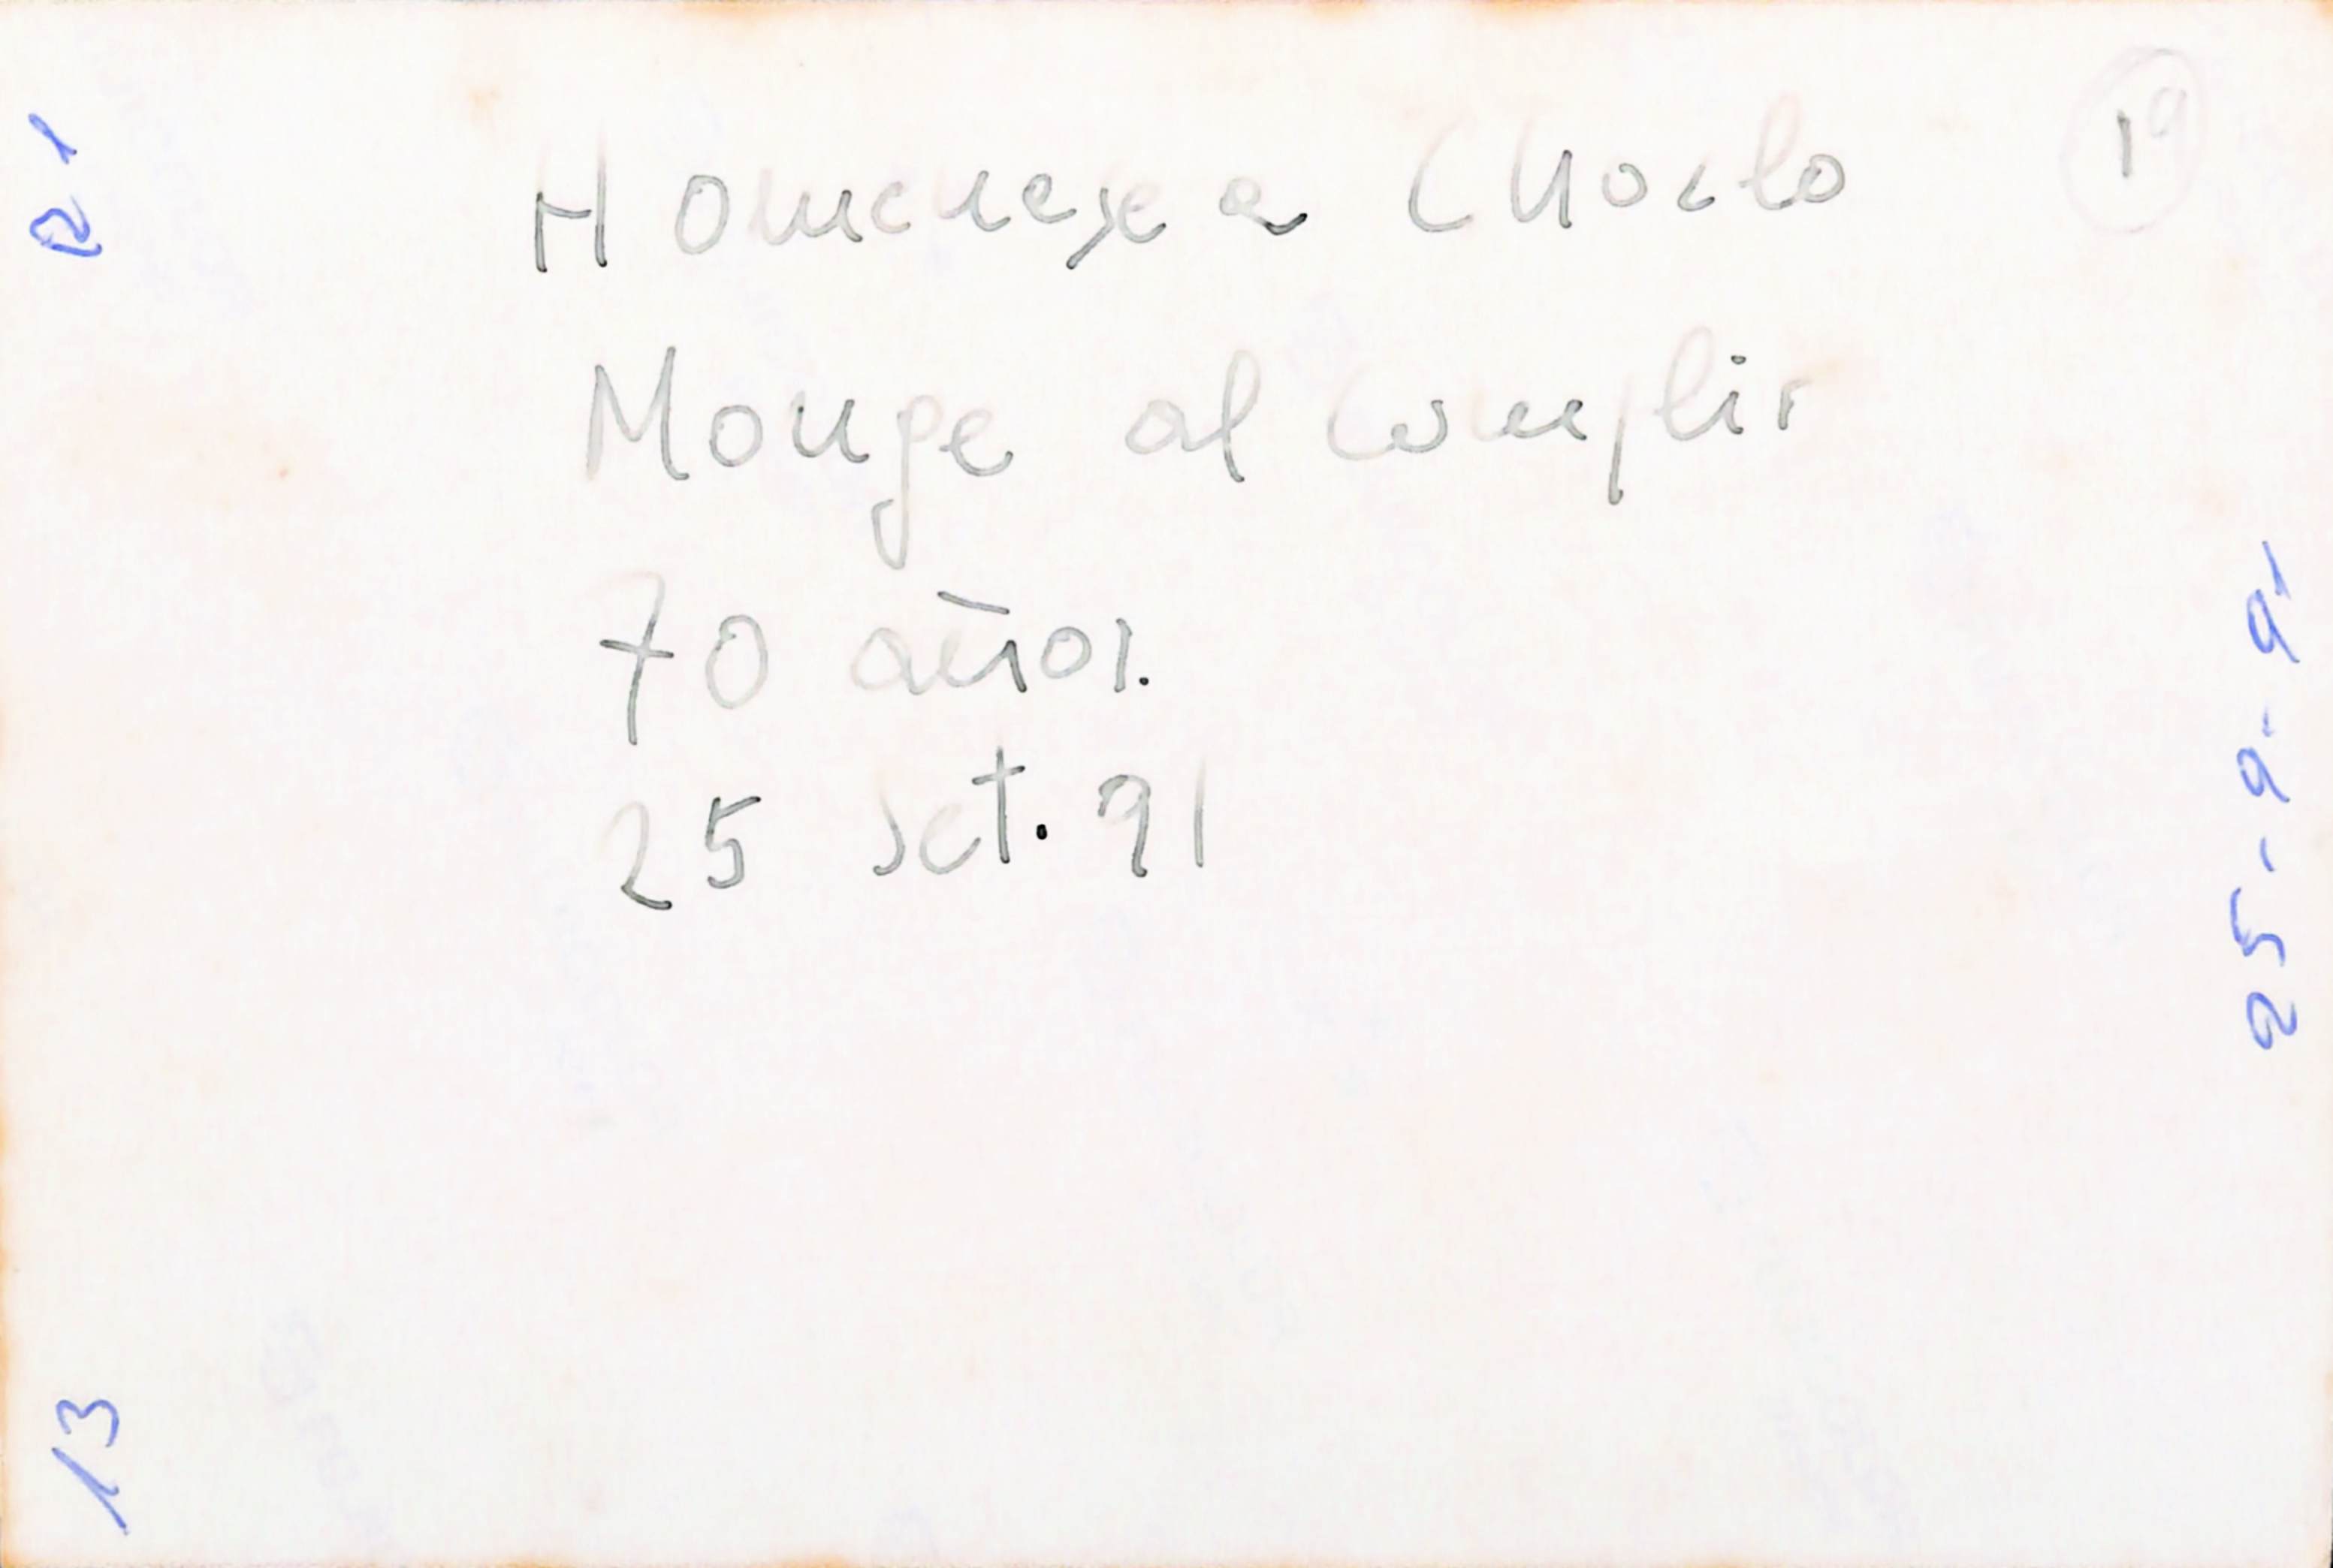 19
Homeneje a Choclo
Monge al cumplir
70 años.
25 set. 91
21
25-9-91
13